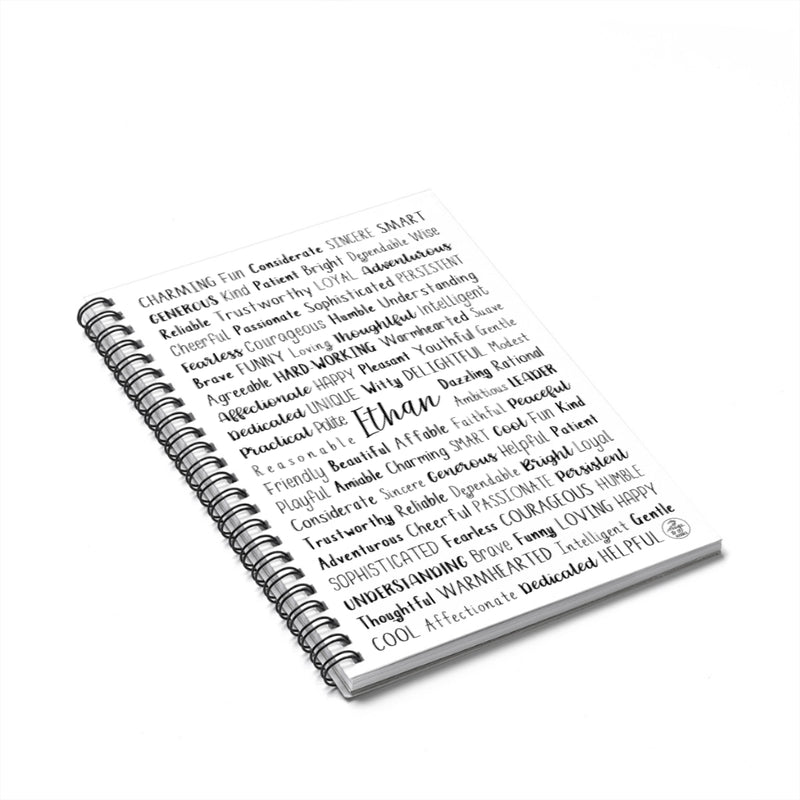 CHARMING Fun Considerate SINCERE SMART
GENEROUS Kind Patient Bright Dependable Wise
Reliable Trustworthy LOYAL Adventurous
Cheerful Passionate Sophisticated PERSISTENT
Fearless Courageous Humble Understanding
Brave FUNNY Loving Thoughtful Intelligent
Agreeable HARD WORKING Warmhearted Suave
Affectionate HAPPY Pleasant Youthful Gentle
Dedicated UNIQUE Witty DELIGHTFUL Modest
Practical Polite Ethan Dazzling Rational
Reasonable Ambitious LEADER
Friendly Beautiful Affable Faithful Peaceful
Playful Amiable Charming SMART Cool Fun Kind
Considerate Sincere Generous Helpful Patient
Trustworthy Reliable Dependable Bright Loyal
Adventurous Cheerful PASSIONATE Persistent
SOPHISTICATED Fearless COURAGEOUS HUMBLE
UNDERSTANDING Brave Funny LOVING HAPPY
Thoughtful WARMHEARTED Intelligent Gentle
COOL Affectionate Dedicated HELPFUL